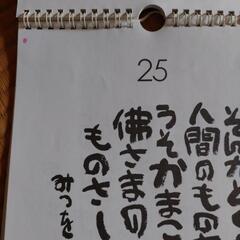 25
そんかとく
人間のもの
うそかま
佛さまの
ものさし
みつを